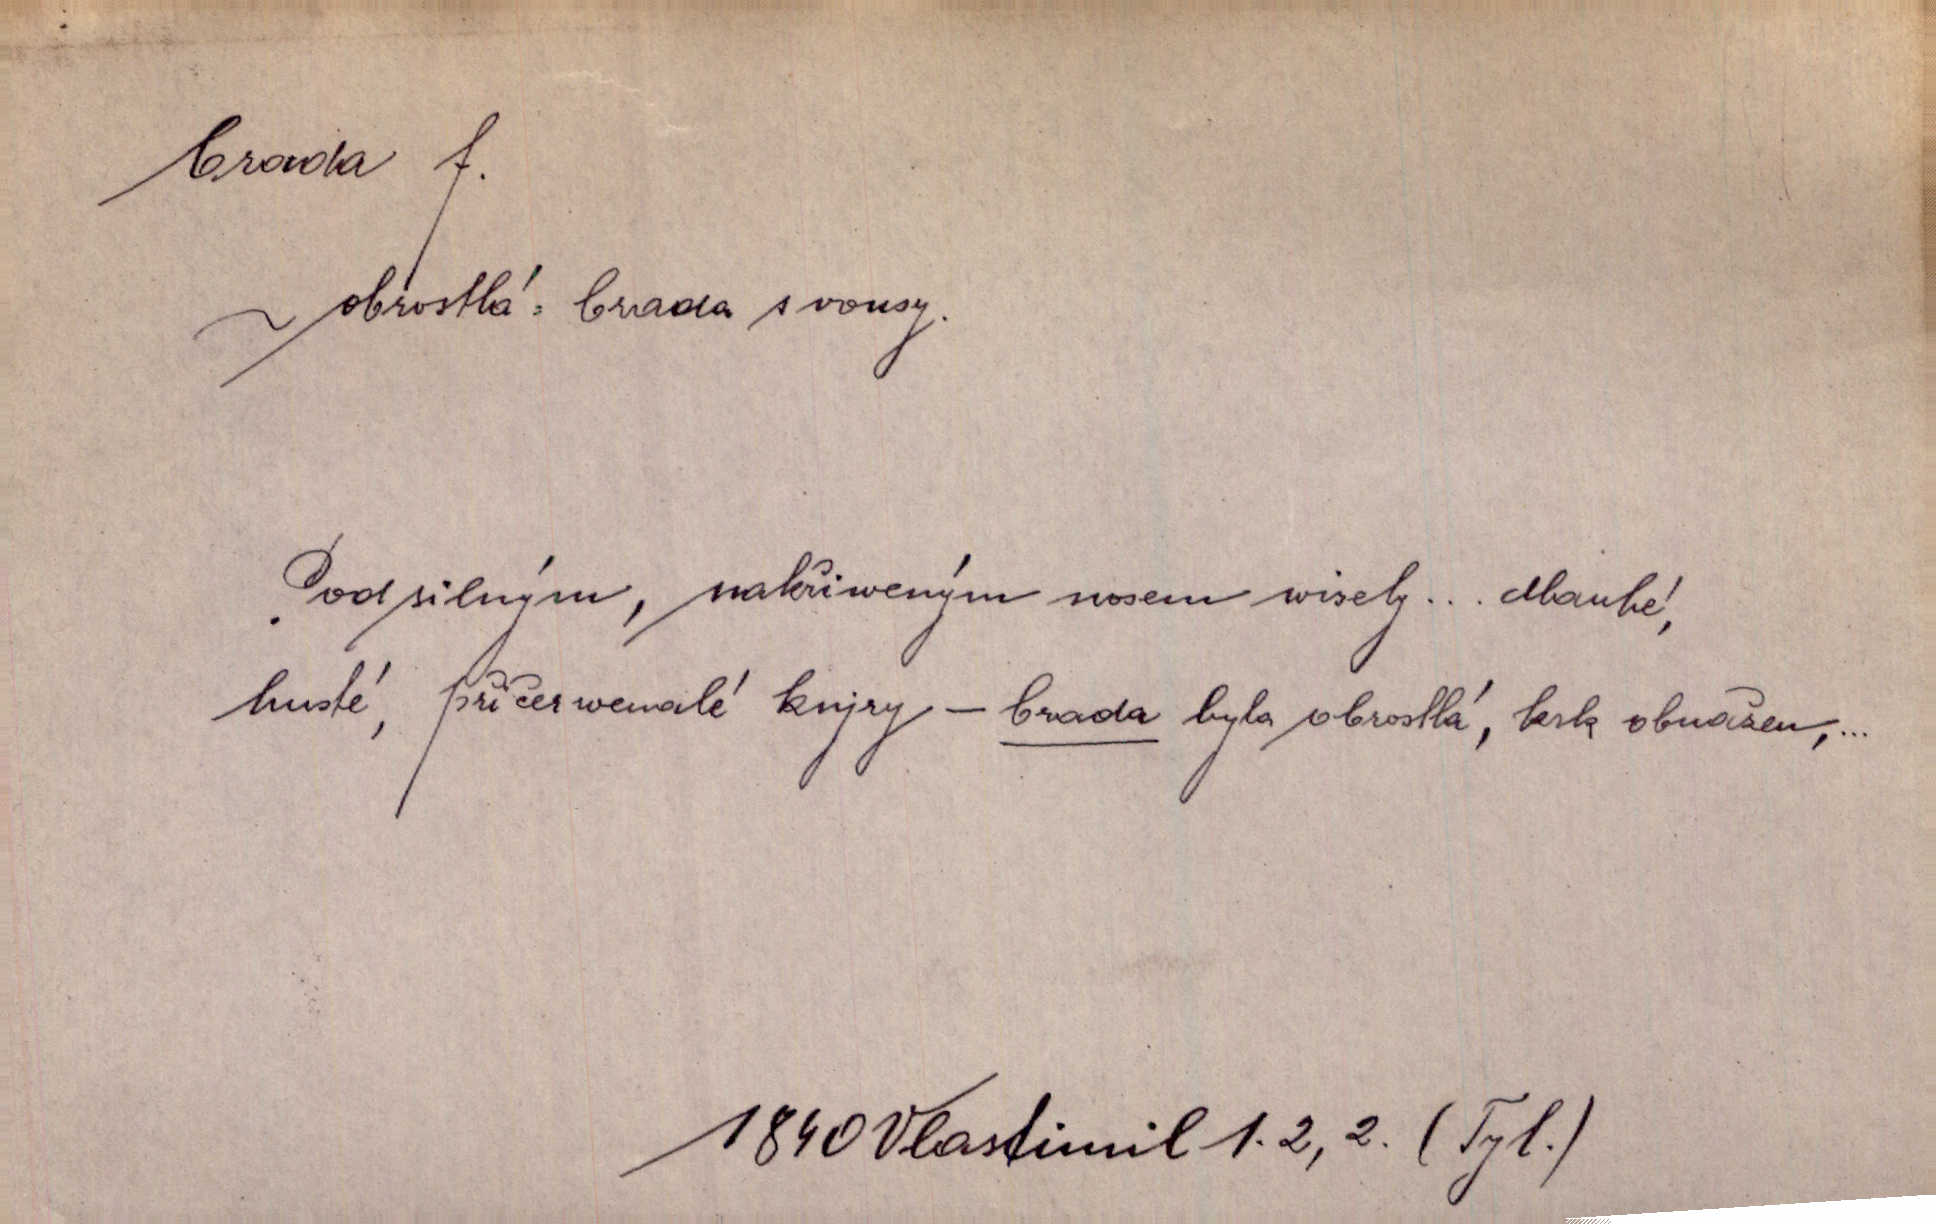 brada f.
~ obrostlá: brada s vousy.
Pod silným, nakřiweným nosem wisely... dlauhé,
husté, přičerwenalé knjry – brada byla obrostlá, krk obnažen,...
1840 Vlastimil 1. 2, 2. (Tyl.)